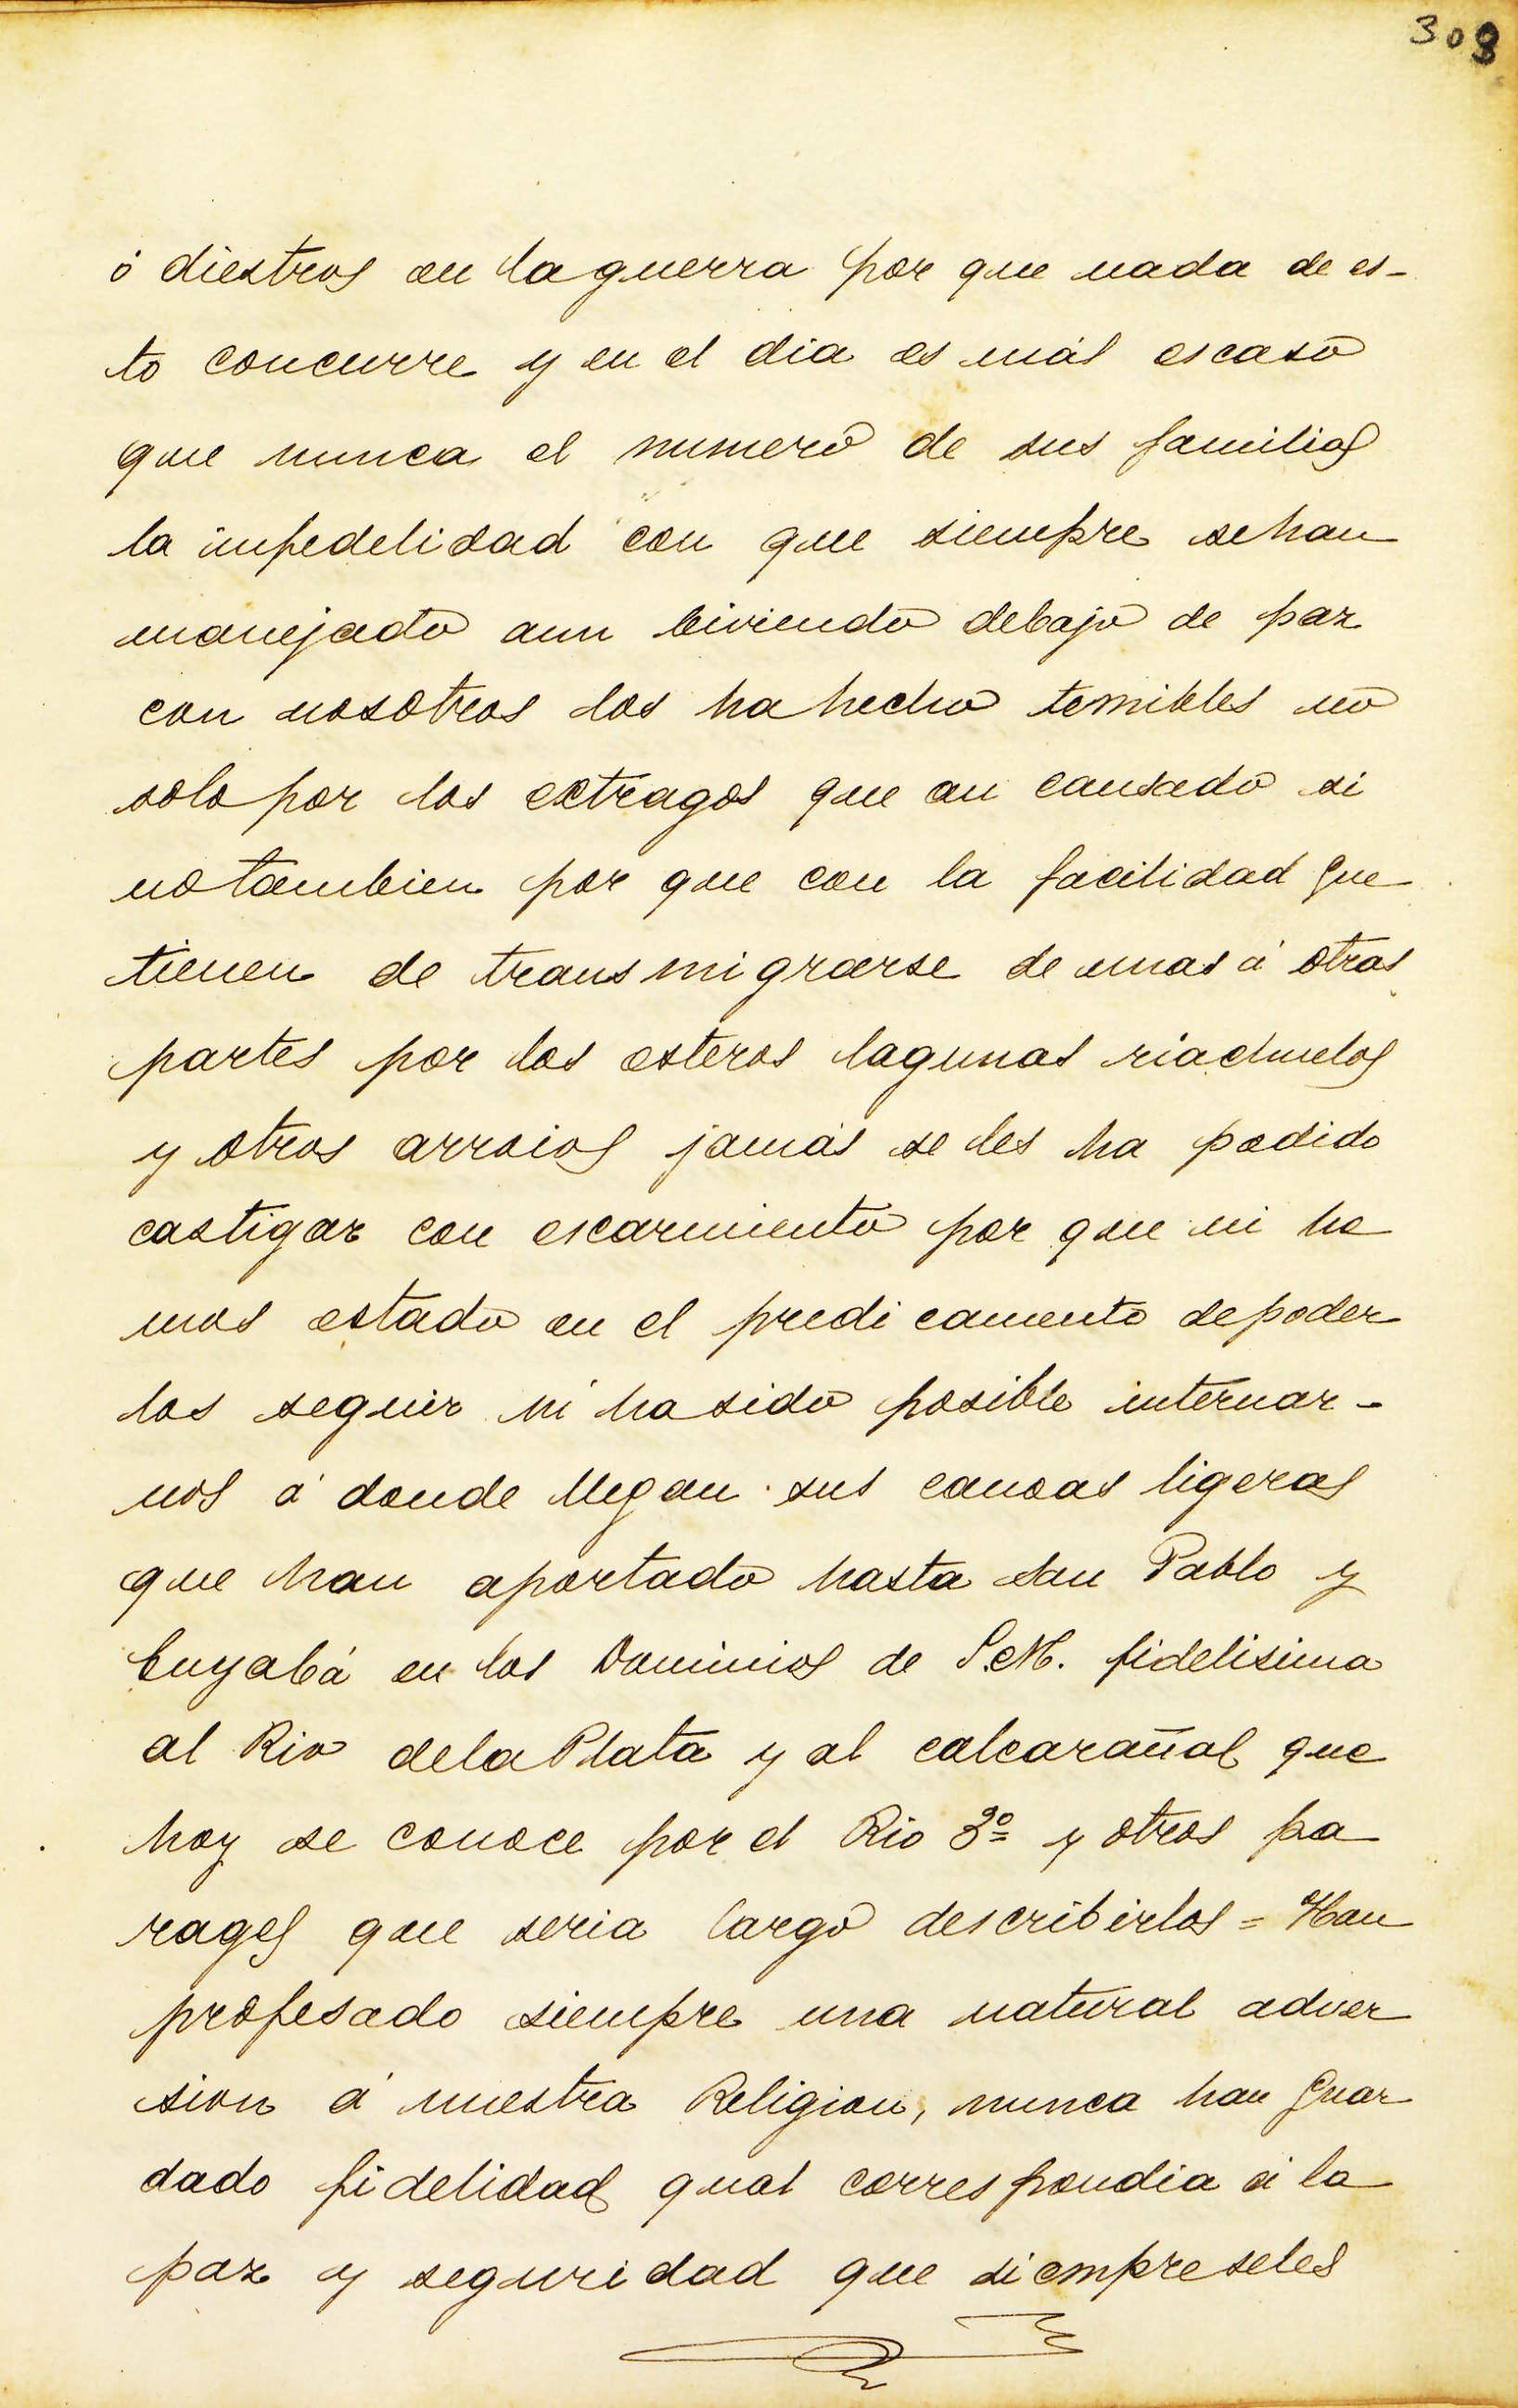 309
ó diestros en laguerra por que nada de es-
to concurre y en el dia es más escaso
que nunca el numero de sus familias
la impedelidad con que siempre sehan
manejado aun biviendo debajo de paz
con nosotros los ha hecho temibles no
solo por los extragos que an causado si
notambien por que con la facilidad que
tienen de trans migrarse de unas á otras
partes por los esteros lagunas riachuelos
y otros arroios jamás se les ha podido
castigar con escarmiento por que ni he
mos estado en el predi camento depoder
los seguir ni hasido posible internar-
nos á donde llegan sus canoas ligeras
que han aportado hasta San Pablo y
Cuyabá en los Dominios de S.M. fidelisima
al Rio delaPlata y al calcarañal que
hoy se conoce por el Rio 3º y otros pa
rages que seria largo describirlos = Han
profesado siempre una natural adver
sion á nuestra Religion, nunca han guar
dado fidelidad qual correspondia á la
paz y seguridad que siempreseles